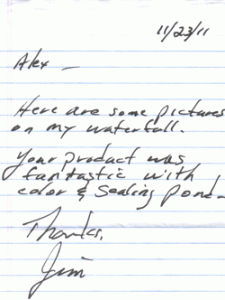 11/23/11
Alex —
Here are some pictures
on my waterfall.
Your product was
fantastic with
color & Sealing pond.
Thanks,
Jim